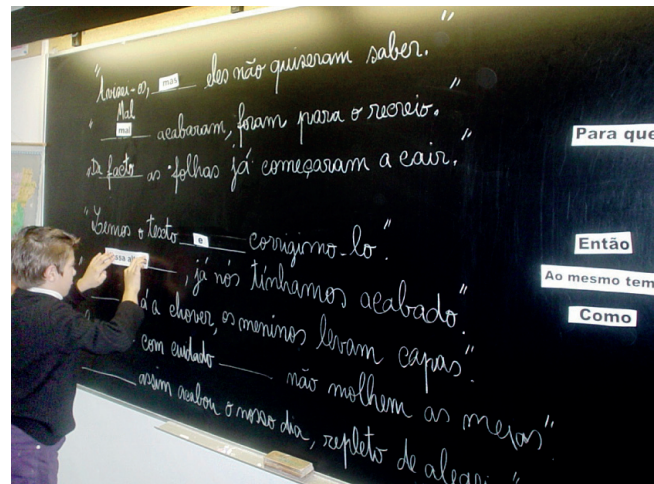 "Avisei-os, mas eles não quiseram saber."
Mal
" mal acabaram, foram para o recreio."
"De facto as folhas já começaram a cair."
"Lemos o texto e corrigimo-lo."
, já nós tínhamos acabado."
a chover, os meninos levam capas."
com cuidado não molhem as mesas"
assim acabou o nosso dia, repleto de
Para que
Então
Ao mesmo tem
Como